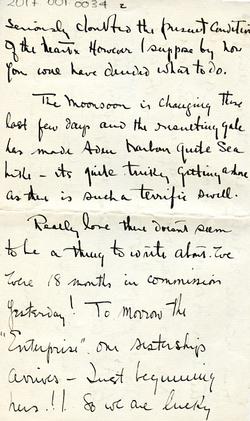 2017 001 0034 2
seriously doubted the present condition
of the Neatix However I suppose by now
you will have decided what to do.
The Monsoon is changing these
last few days and the resulting gale
has made Aden harbour quite Sea
like – its quite tricky getting ashore
as there is such a terrific swell.
Really love there doesnt seem
to be a thing to write about. We
were 18 months in commission
yesterday! To Morrow the
"Enterprise" our sistership
arrives – Just beginning
hers!!! So we are lucky